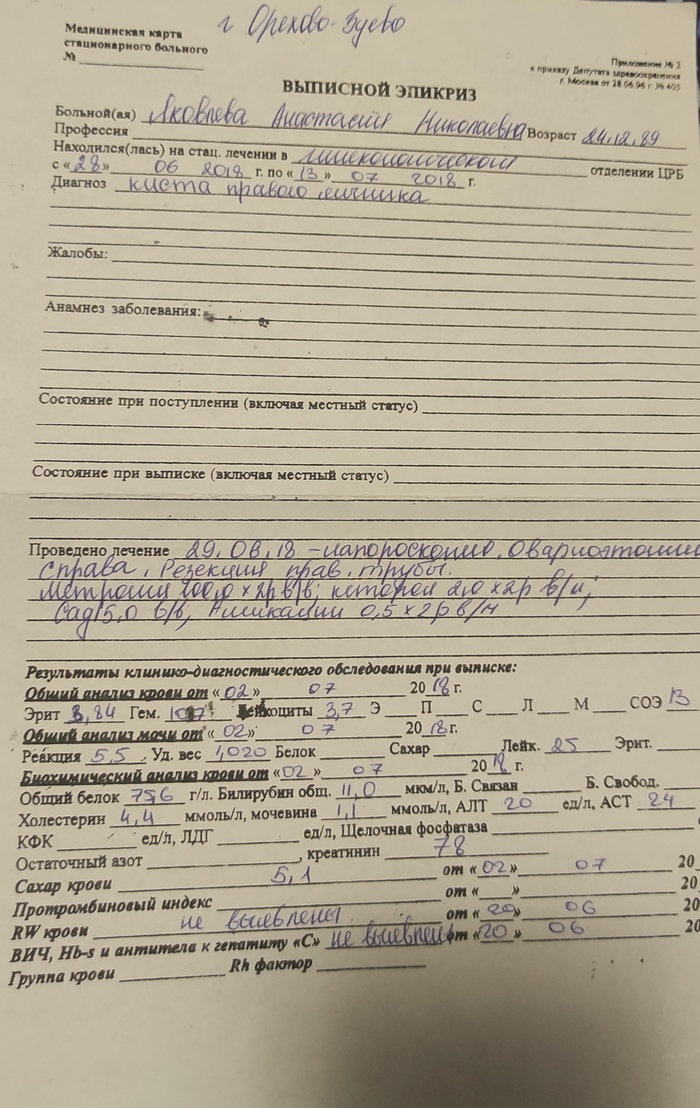 г Орехово-Зуево
Медицинская карта
стационарного больного
№
Приложение № 2
к приказу Депутата здравоохранения
г. Москва от 28.06.96 г. № 405
ВЫПИСНОЙ ЭПИКРИЗ
Больной(ая) Яковлева Анастасия Николаевна Возраст 24.12.89
Профессия
Находился(лась) на стац. лечении в гинекологическом отделении ЦРБ
с «28» 06 2018 г. по «13» 07 2018 г.
Диагноз киста правого яичника
Жалобы:
Анамнез заболевания:
Состояние при поступлении (включая местный статус)
Состояние при выписке (включая местный статус)
Проведено лечение 29.06.18 – лапороскопия. Овариэтомия
справа. Резекция прав. трубы.
Метрогил 100,0 × 2р в/в; кеторол 2,0 × 2р в/м;
5,0 в/в; 0,5 × 2р в/м
Результаты клинико-диагностического обследования при выписке:
Общий анализ крови от «02» 07 2018 г.
Эрит 3,84 Гем. 107 Лейкоциты 3,7 Э П С Л М СОЭ 13
Общий анализ мочи от «02» 07 2018 г.
Реакция 5,5 Уд. вес 1,020 Белок Сахар Лейк. 25 Эрит.
Биохимический анализ крови от «02» 07 2018 г.
Общий белок 75,6 г/л. Билирубин общ. 11,0 мкм/л, Б. Связан Б. Свобод.
Холестерин 4,4 ммоль/л, мочевина 1,1 ммоль/л, АЛТ 20 ед/л, АСТ 24
КФК ед/л, ЛДГ ед/л, Щелочная фосфатаза
Остаточный азот , креатинин 78
Сахар крови 5,1 от «02» 07 20
Протромбиновый индекс от « » 20
RW крови не выявлены от «20» 06 20
ВИЧ, Hb-s и антитела к гепатиту «С» не выявлены от «20» 06 20
Группа крови Rh фактор